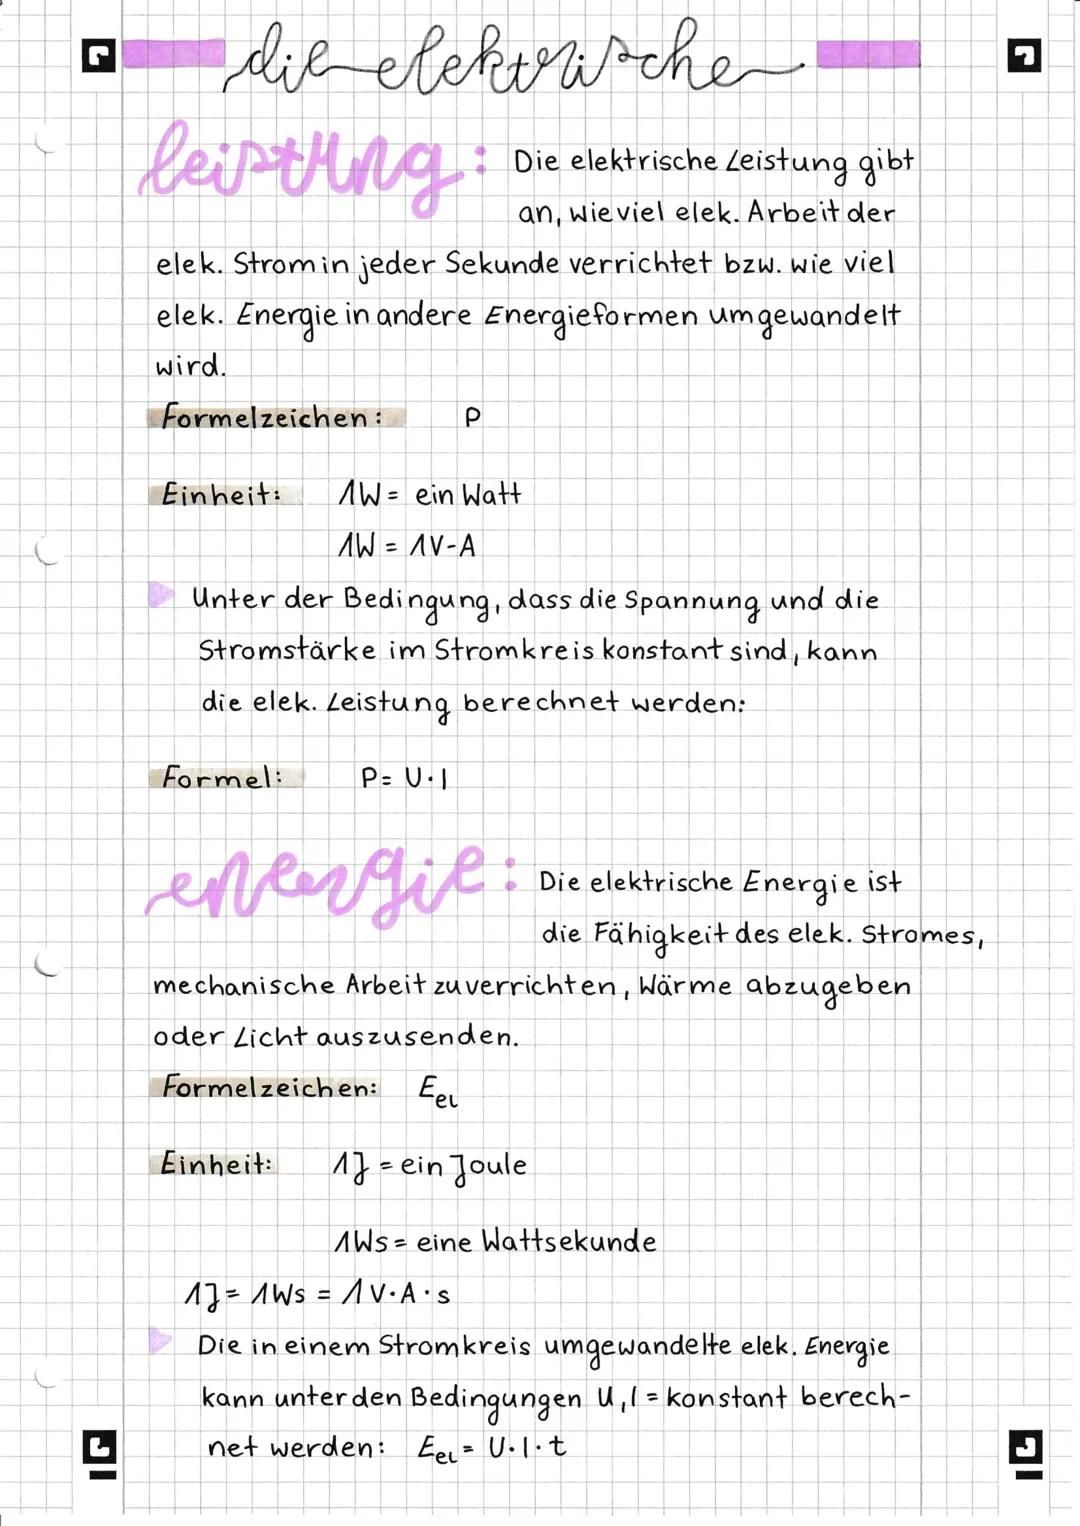 die elektrische
leistung: Die elektrische Leistung gibt
an, wieviel elek. Arbeit der
elek. Strom in jeder Sekunde verrichtet bzw. wie viel
elek. Energie in andere Energieformen umgewandelt
wird.
Formelzeichen: P
Einheit: 1W = ein Watt
1W = 1V-A
Unter der Bedingung, dass die Spannung und die
Stromstärke im Stromkreis konstant sind, kann
die elek. Leistung berechnet werden:
Formel: P = U·I
energie: Die elektrische Energie ist
die Fähigkeit des elek. Stromes,
mechanische Arbeit zu verrichten, Wärme abzugeben
oder Licht auszusenden.
Formelzeichen: Eel
Einheit: 1J = ein Joule
1Ws = eine Wattsekunde
1J = 1Ws = 1V·A·s
Die in einem Stromkreis umgewandelte elek. Energie
kann unter den Bedingungen U, I = konstant berech-
net werden: Eel = U·I·t